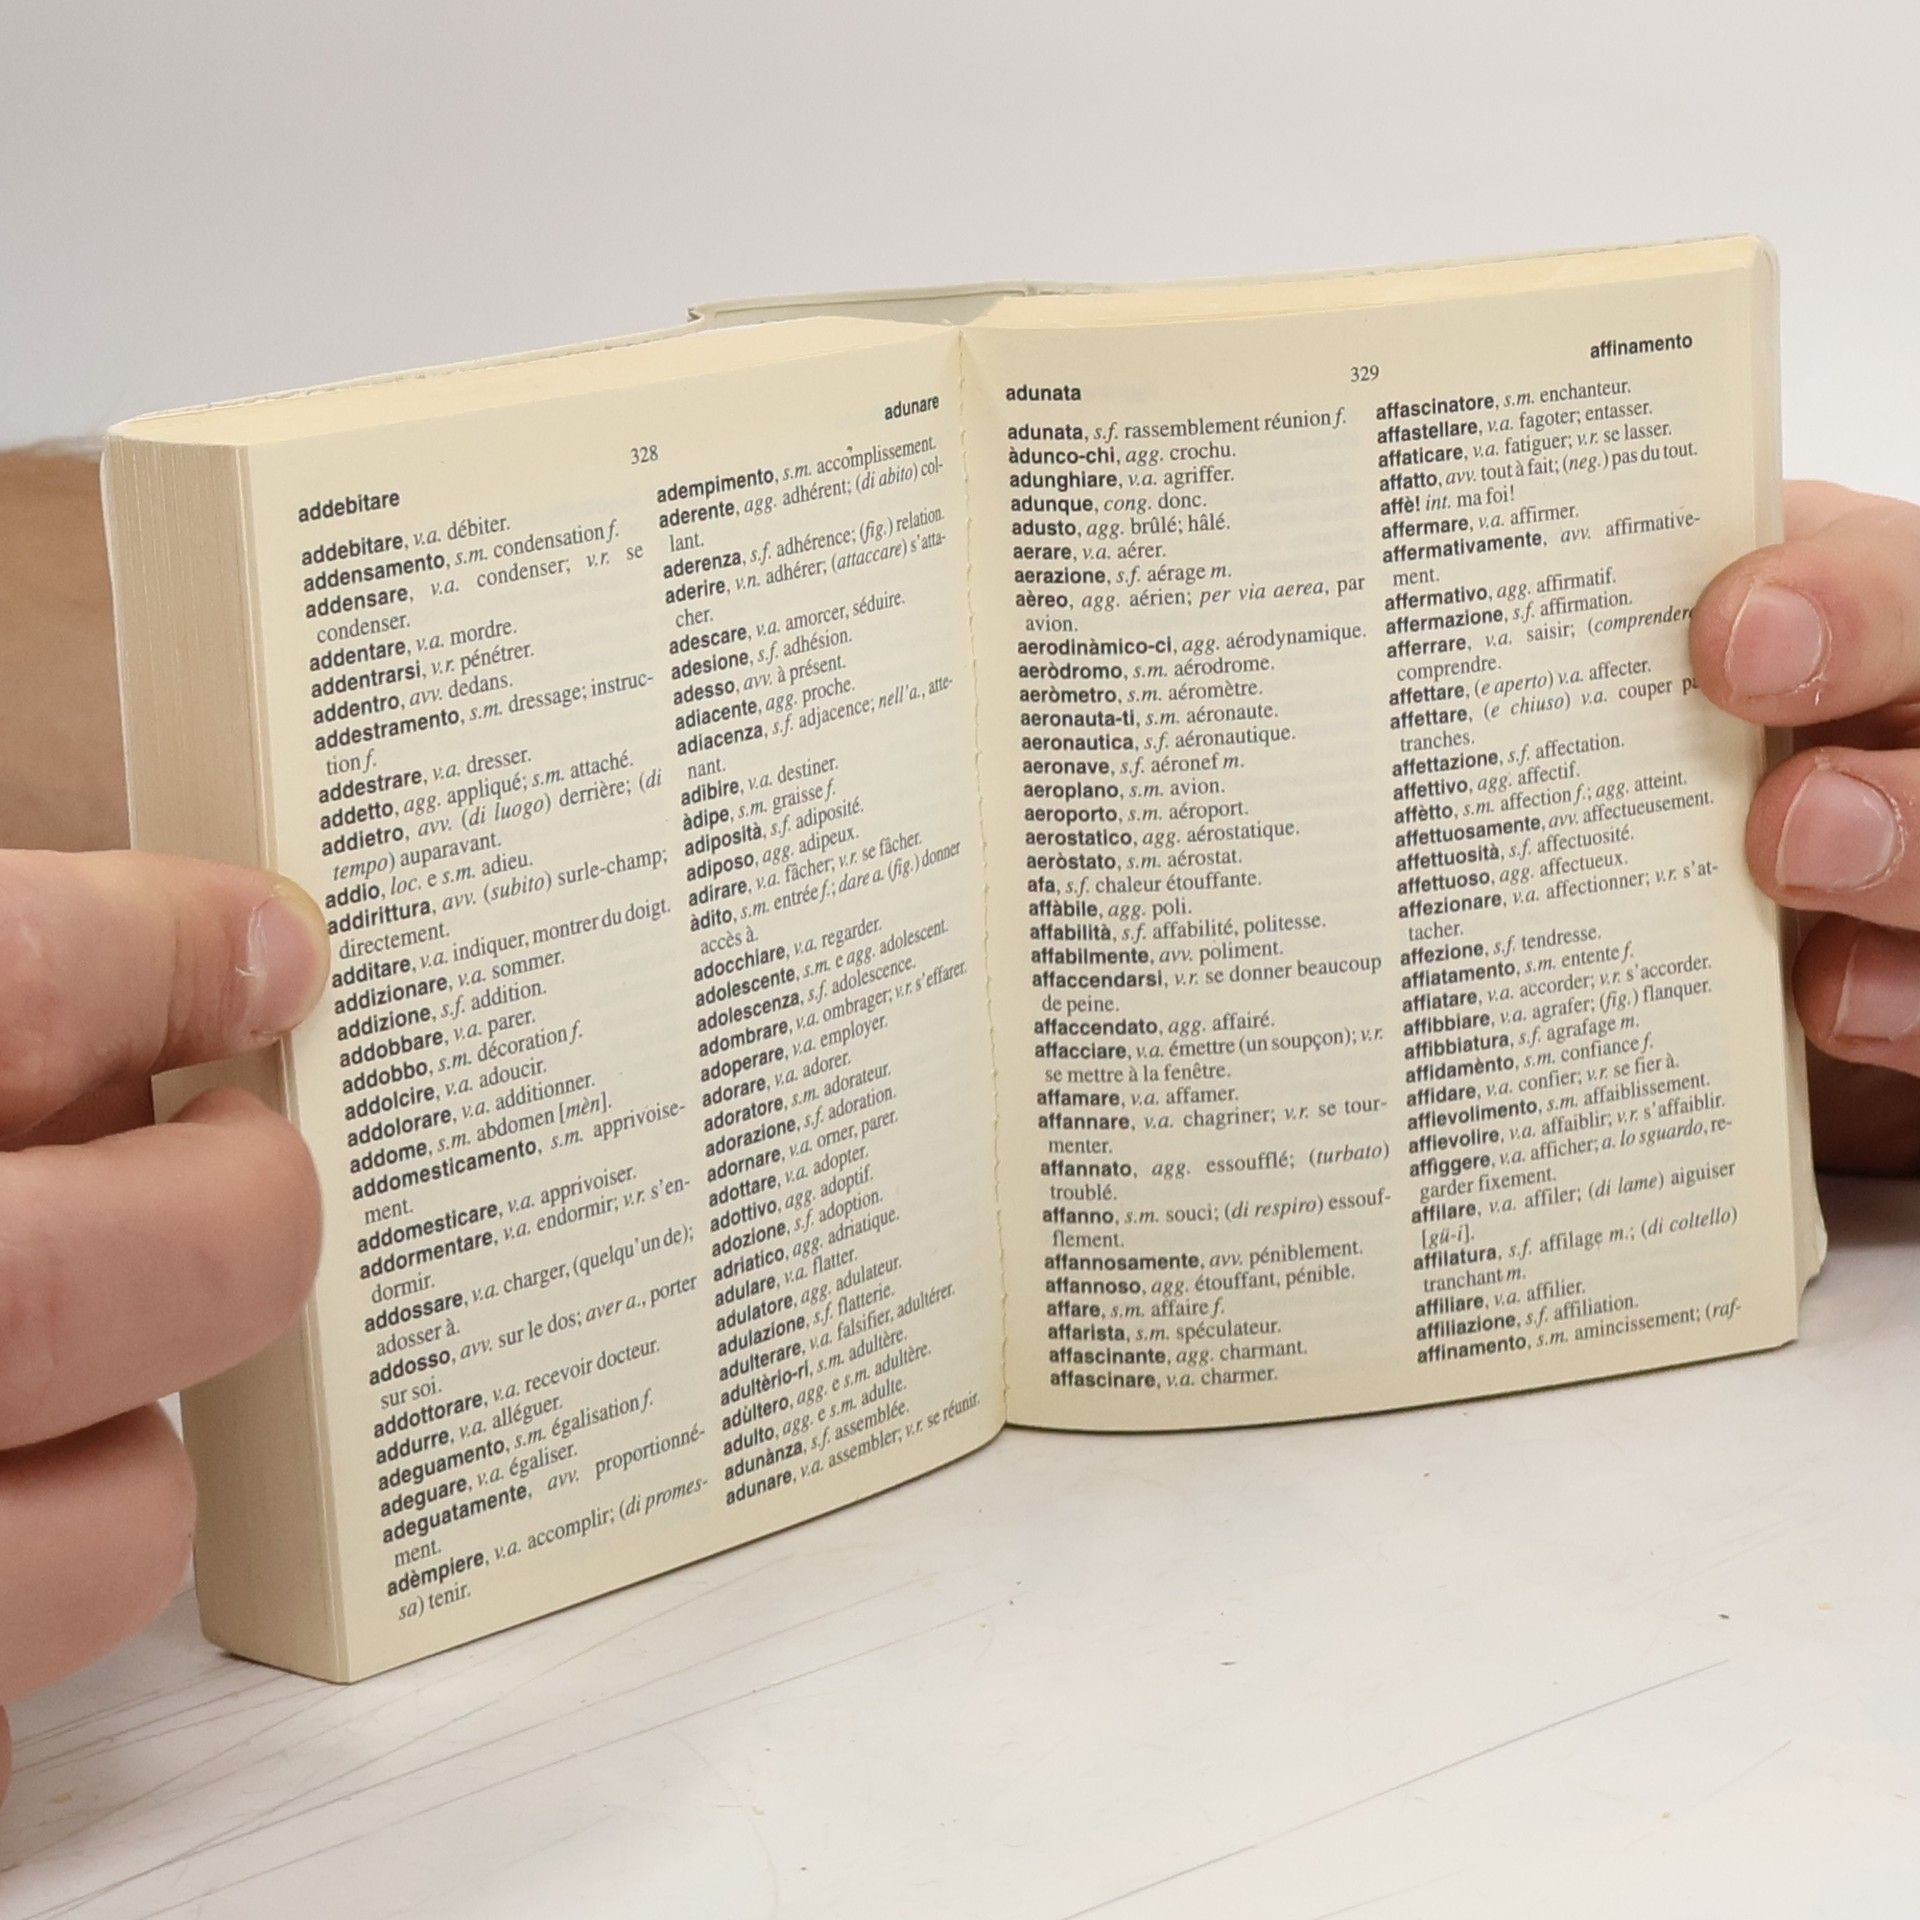 addebitare
328
adunare
addebitare, v.a. débiter.
addensamento, s.m. condensation f.
addensare, v.a. condenser; v.r. se
condenser.
addentare, v.a. mordre.
addentrarsi, v.r. pénétrer.
addentro, avv. dedans.
addestramento, s.m. dressage; instruc-
tion f.
addestrare, v.a. dresser.
addetto, agg. appliqué; s.m. attaché.
addietro, avv. (di luogo) derrière; (di
tempo) auparavant.
addio, loc. e s.m. adieu.
addirittura, avv. (subito) surle-champ;
directement.
additare, v.a. indiquer, montrer du doigt.
addizionare, v.a. sommer.
addizione, s.f. addition.
addobbare, v.a. parer.
addobbo, s.m. décoration f.
addolcire, v.a. adoucir.
addolorare, v.a. additionner.
addome, s.m. abdomen [mèn].
addomesticamento, s.m. apprivoise-
ment.
addomesticare, v.a. apprivoiser.
addormentare, v.a. endormir; v.r. s'en-
dormir.
addossare, v.a. charger, (quelqu'un de);
adosser à.
addosso, avv. sur le dos; aver a., porter
sur soi.
addottorare, v.a. recevoir docteur.
addurre, v.a. alléguer.
adeguamento, s.m. égalisation f.
adeguare, v.a. égaliser.
adeguatamente, avv. proportionné-
ment.
adèmpiere, v.a. accomplir; (di promes-
sa) tenir.
adempimento, s.m. accomplissement.
aderente, agg. adhérent; (di abito) col-
lant.
aderenza, s.f. adhérence; (fig.) relation.
aderire, v.n. adhérer; (attaccare) s'atta-
cher.
adescare, v.a. amorcer, séduire.
adesione, s.f. adhésion.
adesso, avv. à présent.
adiacente, agg. proche.
adiacenza, s.f. adjacence; nell'a., atte-
nant.
adibire, v.a. destiner.
àdipe, s.m. graisse f.
adiposità, s.f. adiposité.
adiposo, agg. adipeux.
adirare, v.a. fâcher; v.r. se fâcher.
àdito, s.m. entrée f.; dare a. (fig.) donner
accès à.
adocchiare, v.a. regarder.
adolescente, s.m. e agg. adolescent.
adolescenza, s.f. adolescence.
adombrare, v.a. ombrager; v.r. s'effarer.
adoperare, v.a. employer.
adorare, v.a. adorer.
adoratore, s.m. adorateur.
adorazione, s.f. adoration.
adornare, v.a. orner, parer.
adottare, v.a. adopter.
adottivo, agg. adoptif.
adozione, s.f. adoption.
adriatico, agg. adriatique.
adulare, v.a. flatter.
adulatore, agg. adulateur.
adulazione, s.f. flatterie.
adulterare, v.a. falsifier, adultérer.
adultèrio-ri, s.m. adultère.
adùltero, agg. e s.m. adultère.
adulto, agg. e s.m. adulte.
adunànza, s.f. assemblée.
adunare, v.a. assembler; v.r. se réunir.
adunata
329
affinamento
adunata, s.f. rassemblement réunion f.
àdunco-chi, agg. crochu.
adunghiare, v.a. agriffer.
adunque, cong. donc.
adusto, agg. brûlé; hâlé.
aerare, v.a. aérer.
aerazione, s.f. aérage m.
aèreo, agg. aérien; per via aerea, par
avion.
aerodinàmico-ci, agg. aérodynamique.
aeròdromo, s.m. aérodrome.
aeròmetro, s.m. aéromètre.
aeronauta-ti, s.m. aéronaute.
aeronautica, s.f. aéronautique.
aeronave, s.f. aéronef m.
aeroplano, s.m. avion.
aeroporto, s.m. aéroport.
aerostatico, agg. aérostatique.
aeròstato, s.m. aérostat.
afa, s.f. chaleur étouffante.
affàbile, agg. poli.
affabilità, s.f. affabilité, politesse.
affabilmente, avv. poliment.
affaccendarsi, v.r. se donner beaucoup
de peine.
affaccendato, agg. affairé.
affacciare, v.a. émettre (un soupçon); v.r.
se mettre à la fenêtre.
affamare, v.a. affamer.
affannare, v.a. chagriner; v.r. se tour-
menter.
affannato, agg. essoufflé; (turbato)
troublé.
affanno, s.m. souci; (di respiro) essouf-
flement.
affannosamente, avv. péniblement.
affannoso, agg. étouffant, pénible.
affare, s.m. affaire f.
affarista, s.m. spéculateur.
affascinante, agg. charmant.
affascinare, v.a. charmer.
affascinatore, s.m. enchanteur.
affastellare, v.a. fagoter; entasser.
affaticare, v.a. fatiguer; v.r. se lasser.
affatto, avv. tout à fait; (neg.) pas du tout.
affè! int. ma foi!
affermare, v.a. affirmer.
affermativamente, avv. affirmative-
ment.
affermativo, agg. affirmatif.
affermazione, s.f. affirmation.
afferrare, v.a. saisir; (comprendere
comprendre.
affettare, (e aperto) v.a. affecter.
affettare, (e chiuso) v.a. couper
tranches.
affettazione, s.f. affectation.
affettivo, agg. affectif.
affètto, s.m. affection f.; agg. atteint.
affettuosamente, avv. affectueusement.
affettuosità, s.f. affectuosité.
affettuoso, agg. affectueux.
affezionare, v.a. affectionner; v.r. s'at-
tacher.
affezione, s.f. tendresse.
affiatamento, s.m. entente f.
affiatare, v.a. accorder; v.r. s'accorder.
affibbiare, v.a. agrafer; (fig.) flanquer.
affibbiatura, s.f. agrafage m.
affidamènto, s.m. confiance f.
affidare, v.a. confier; v.r. se fier à.
affievolimento, s.m. affaiblissement.
affievolire, v.a. affaiblir; v.r. s'affaiblir.
affiggere, v.a. afficher; a. lo sguardo, re-
garder fixement.
affilare, v.a. affiler; (di lame) aiguiser
[gü-i].
affilatura, s.f. affilage m.; (di coltello)
tranchant m.
affiliare, v.a. affilier.
affiliazione, s.f. affiliation.
affinamento, s.m. amincissement; (raf-